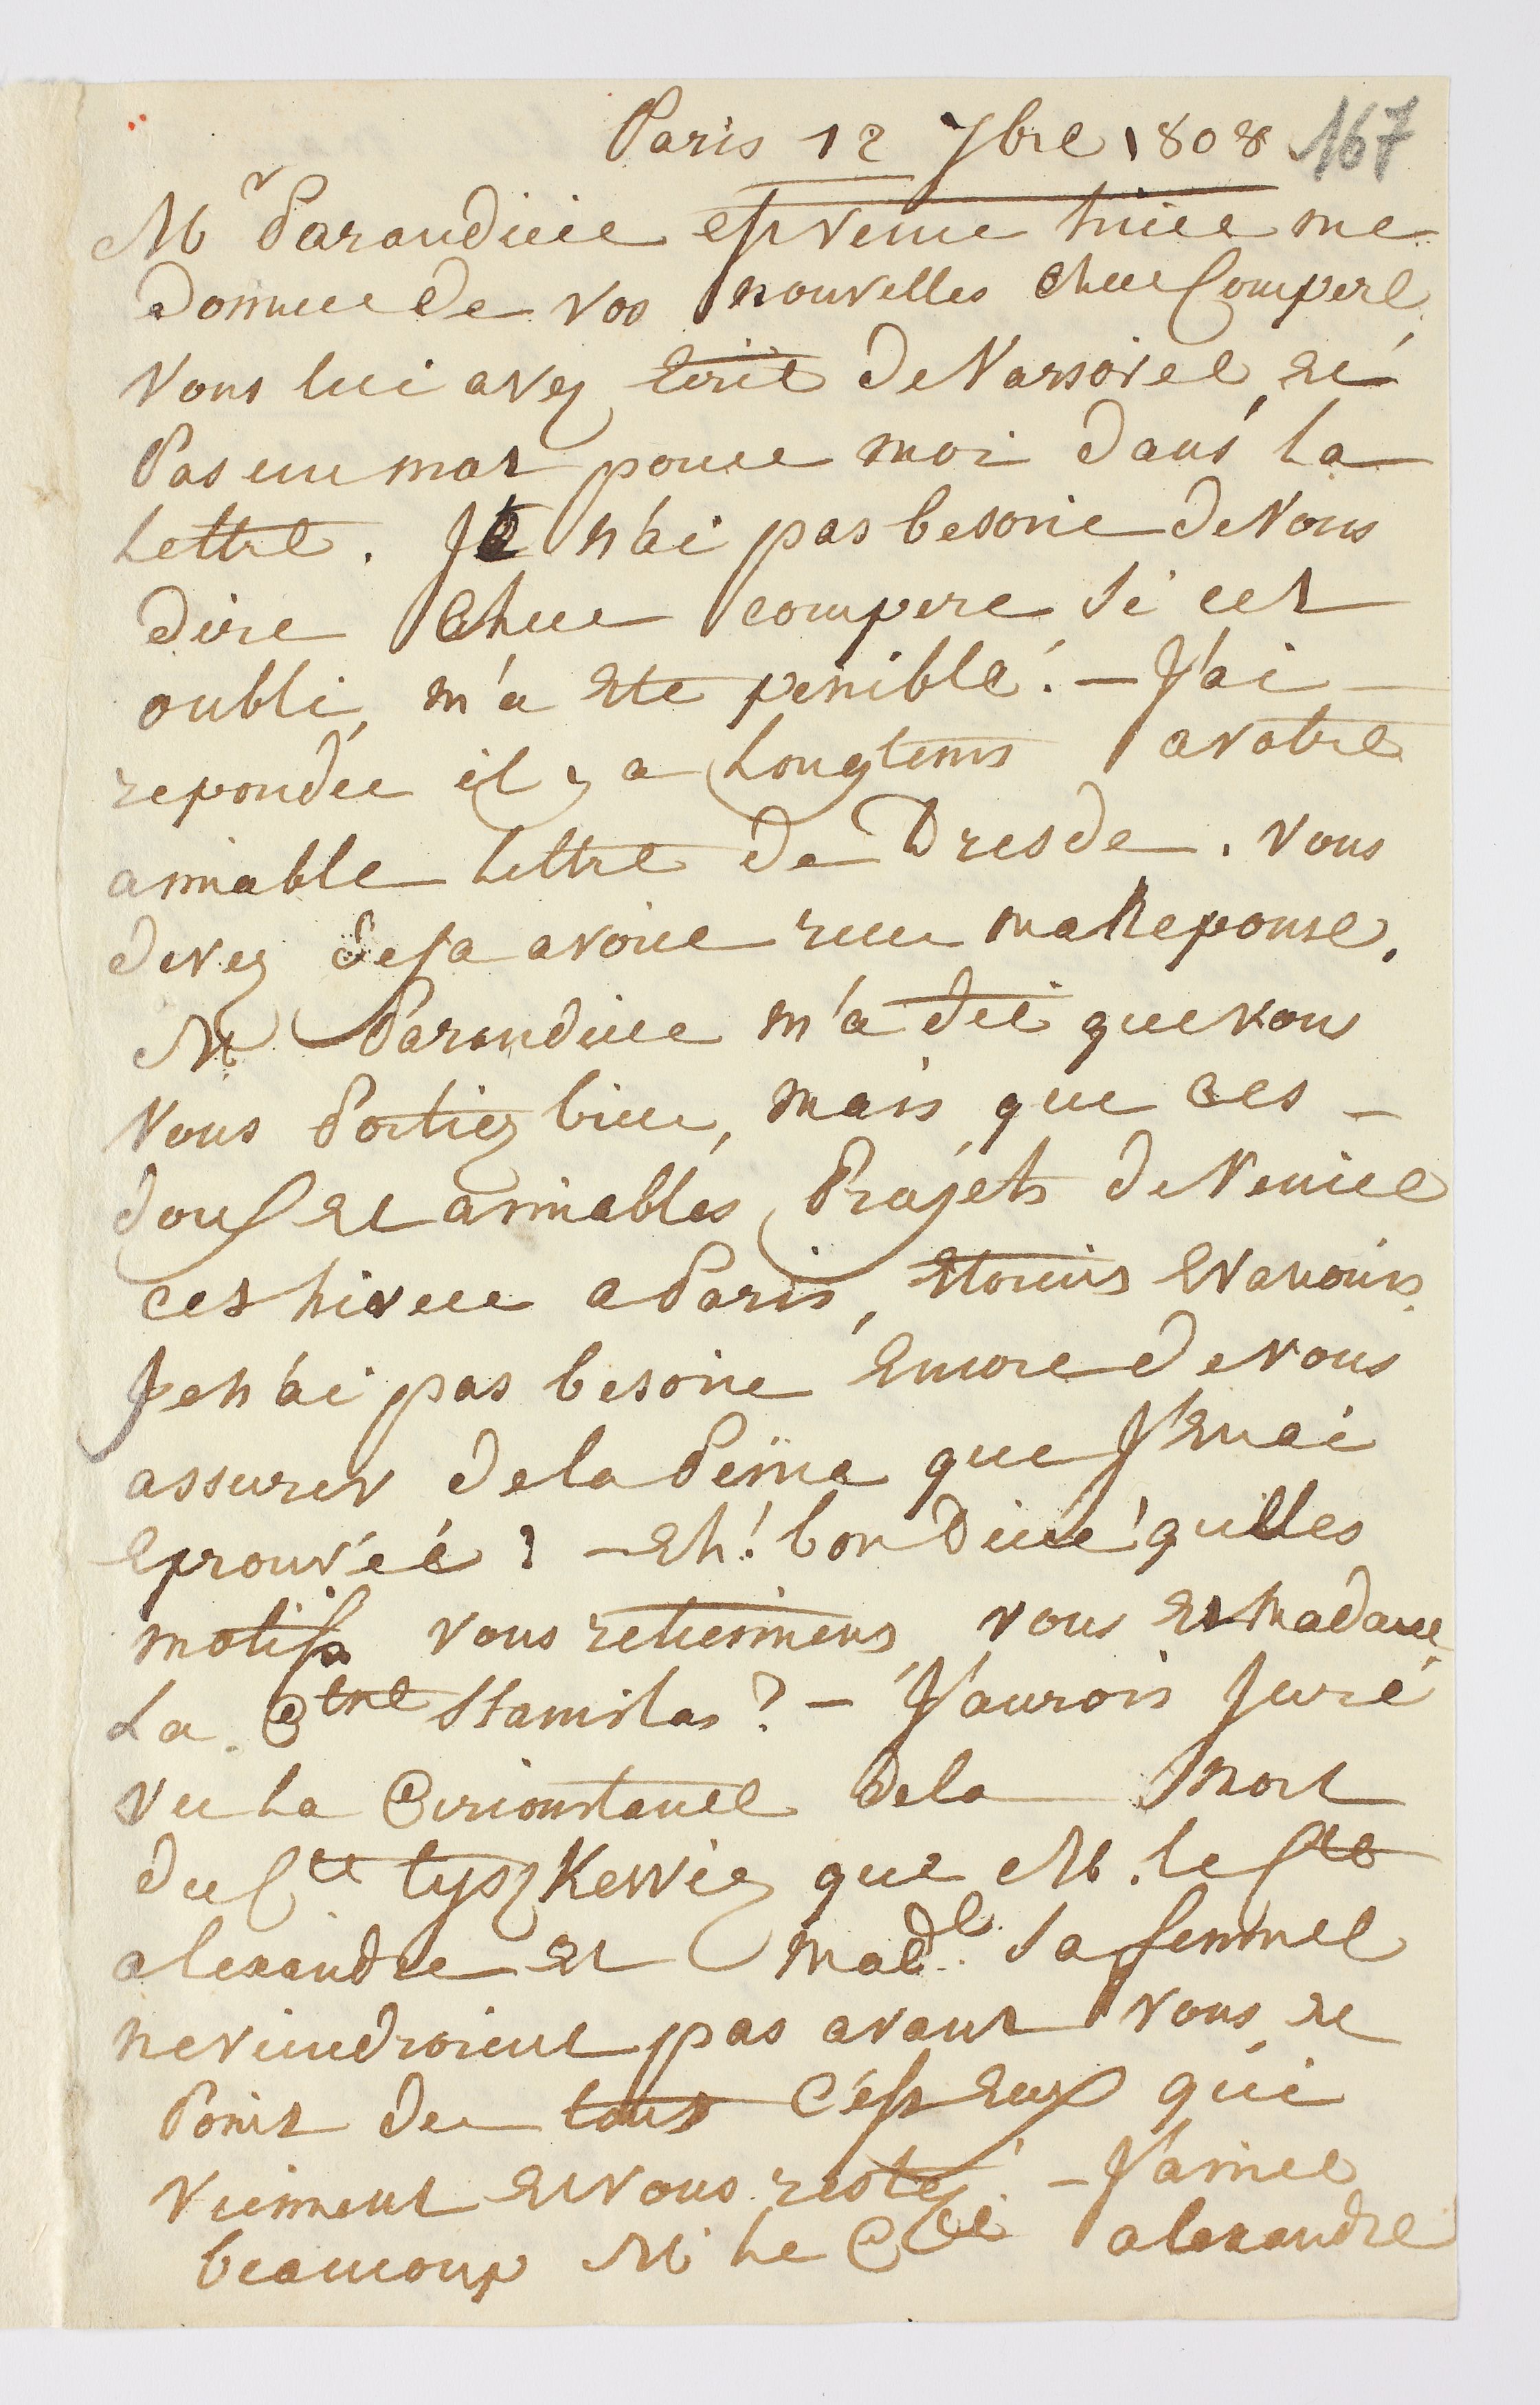 Paris 12 7bre 1808 167
Mr Parandier est venu hier me
donner de vos nouvelles cher Compere,
Vous lui avez Ecrit de Varsovie, et
Pas un mot pour moi dans la
Lettre. Je n'ai pas besoin de Vous
dire Cher compere si cet
oubli, m'a Ete penible! - J'ai
repondu il y a Longtems a votre
aimable Lettre de Dresde. Vous
devez deja avoir recu ma Reponse.
M Parandier m'a dit que vous
Vous Portiez bien, mais que ces
doux et aimables Projets de Venir
cet hiver a Paris, Etoient Evanouis.
Je n'ai pas besoin Encore de vous
assurer de la Peine que J'En ai
Eprouvéé? - Eh! bon Dieu! quelles
motifs vous retiennent, vous et Madame
La Ctesse Stanislas? - J'aurois Juré
Vu La Circonstance de la Mort
du Cte tyszKewiez que M. le Cte
alexandre et Made. Sa femme
ne viendroient pas avant Vous, et
Point du tout C'est Eux qui
Viennent Et Vous restez! - J'aime
beaucoup M Le Cte alexandre